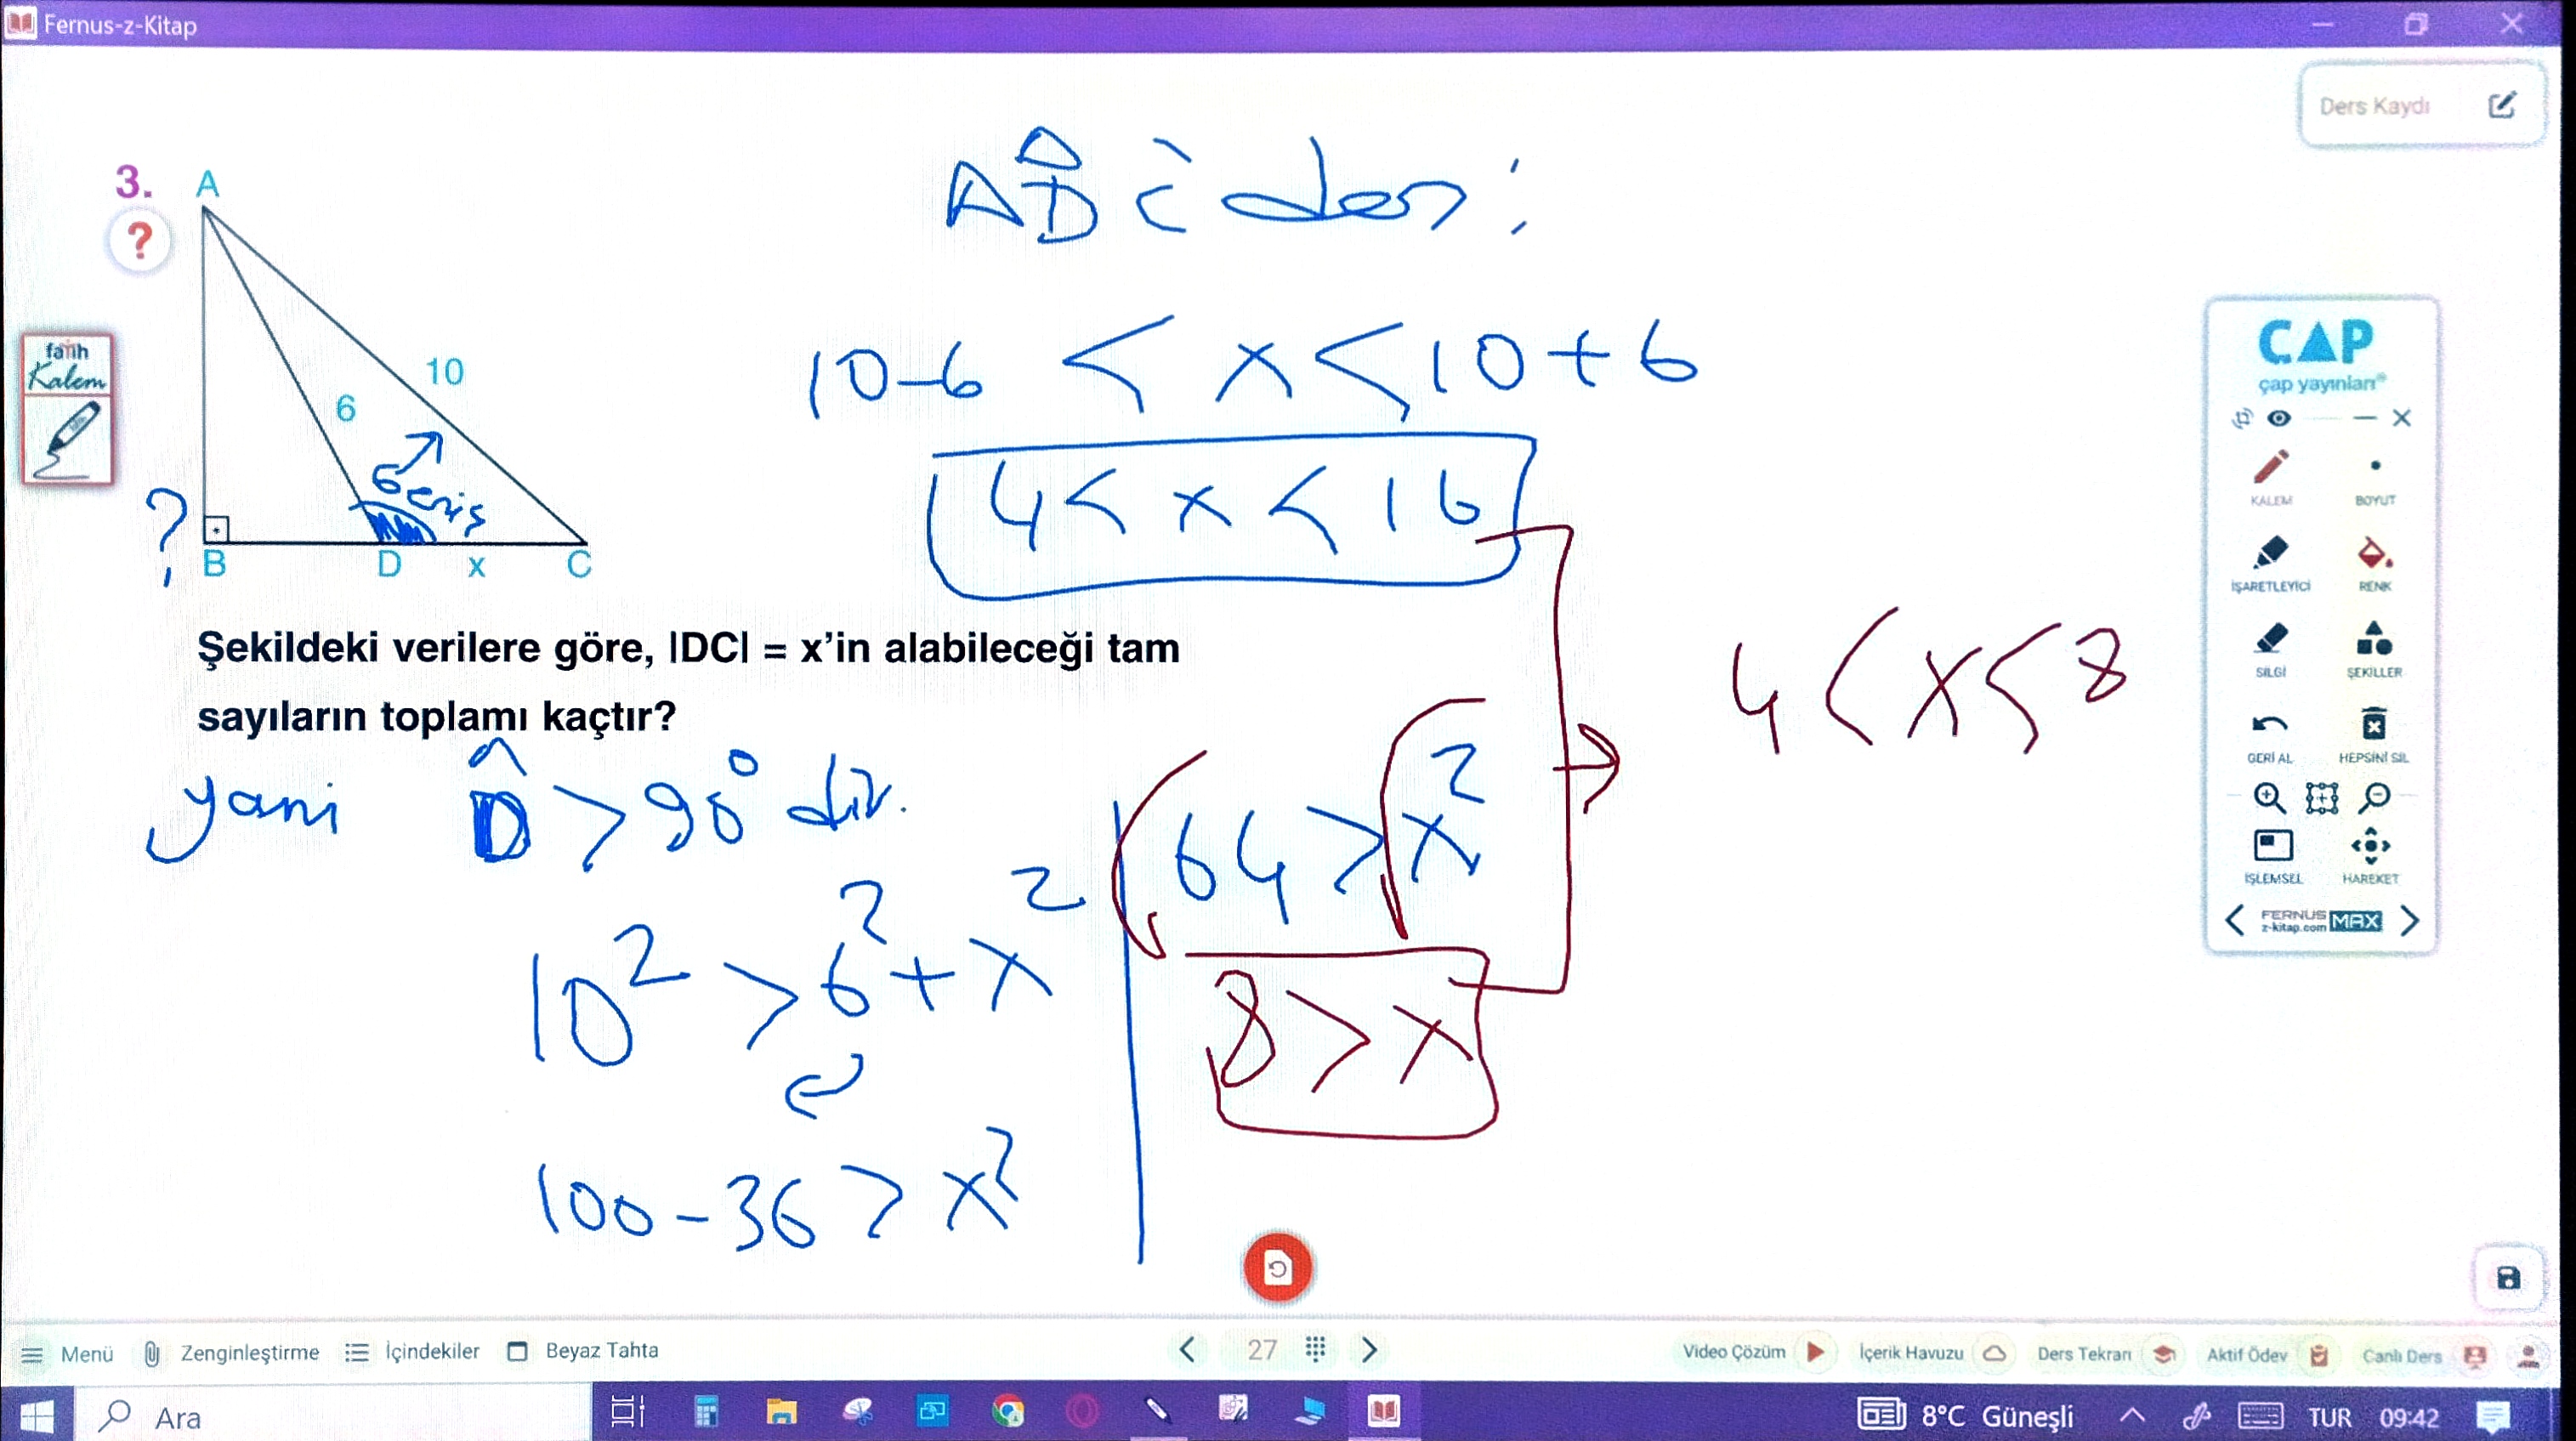 Fernus-z-Kitap
Ders Kaydı
3.
?
A
10
6
Geniş
?
B
D
x
C
fatih
Kalem
ADC den:
10-6 < x < 10+6
4 < x < 16
Şekildeki verilere göre, |DC| = x'in alabileceği tam
sayıların toplamı kaçtır?
yani D > 90° dir.
10² > 6² + x²
100-36 > x²
64 > x²
8 > x
4 < x < 8
ÇAP
çap yayınları®
KALEM
BOYUT
İŞARETLEYİCİ
RENK
SİLGİ
ŞEKİLLER
GERİ AL
HEPSİNİ SİL
İŞLEMSEL
HAREKET
FERNUS MAX
z-kitap.com
Menü
Zenginleştirme
İçindekiler
Beyaz Tahta
27
Video Çözüm
İçerik Havuzu
Ders Tekrarı
Aktif Ödev
Canlı Ders
Ara
8°C Güneşli
TUR
09:42